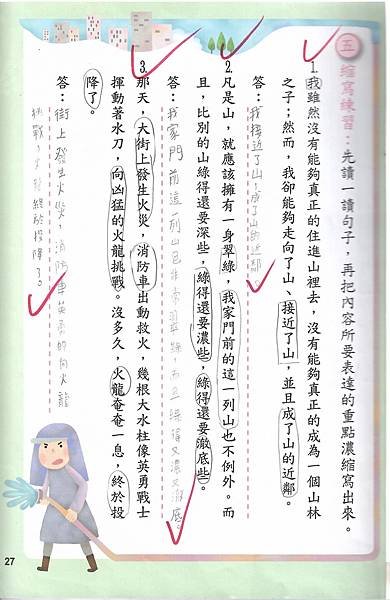 五 縮寫練習：先讀一讀句子，再把內容所要表達的重點濃縮寫出來。
1.我雖然沒有能夠真正的住進山裡去，沒有能夠真正的成為一個山林
之子；然而，我卻能夠走向了山、接近了山，並且成了山的近鄰。
答：我接近了山，成了山的近鄰。
2.凡是山，就應該擁有一身翠綠，我家門前的這一列山也不例外。而
且，比別的山綠得還要深些，綠得還要濃些，綠得還要澈底些。
答：我家門前這一列山也非常翠綠，而且綠得又濃又澈底。
3.那天，大街上發生火災，消防車出動救火，幾根大水柱像英勇戰士
揮動著水刀，向凶猛的火龍挑戰。沒多久，火龍奄奄一息，終於投
降了。
答：街上發生火災，消防車英勇的向火龍
挑戰，火龍終於投降了。
27